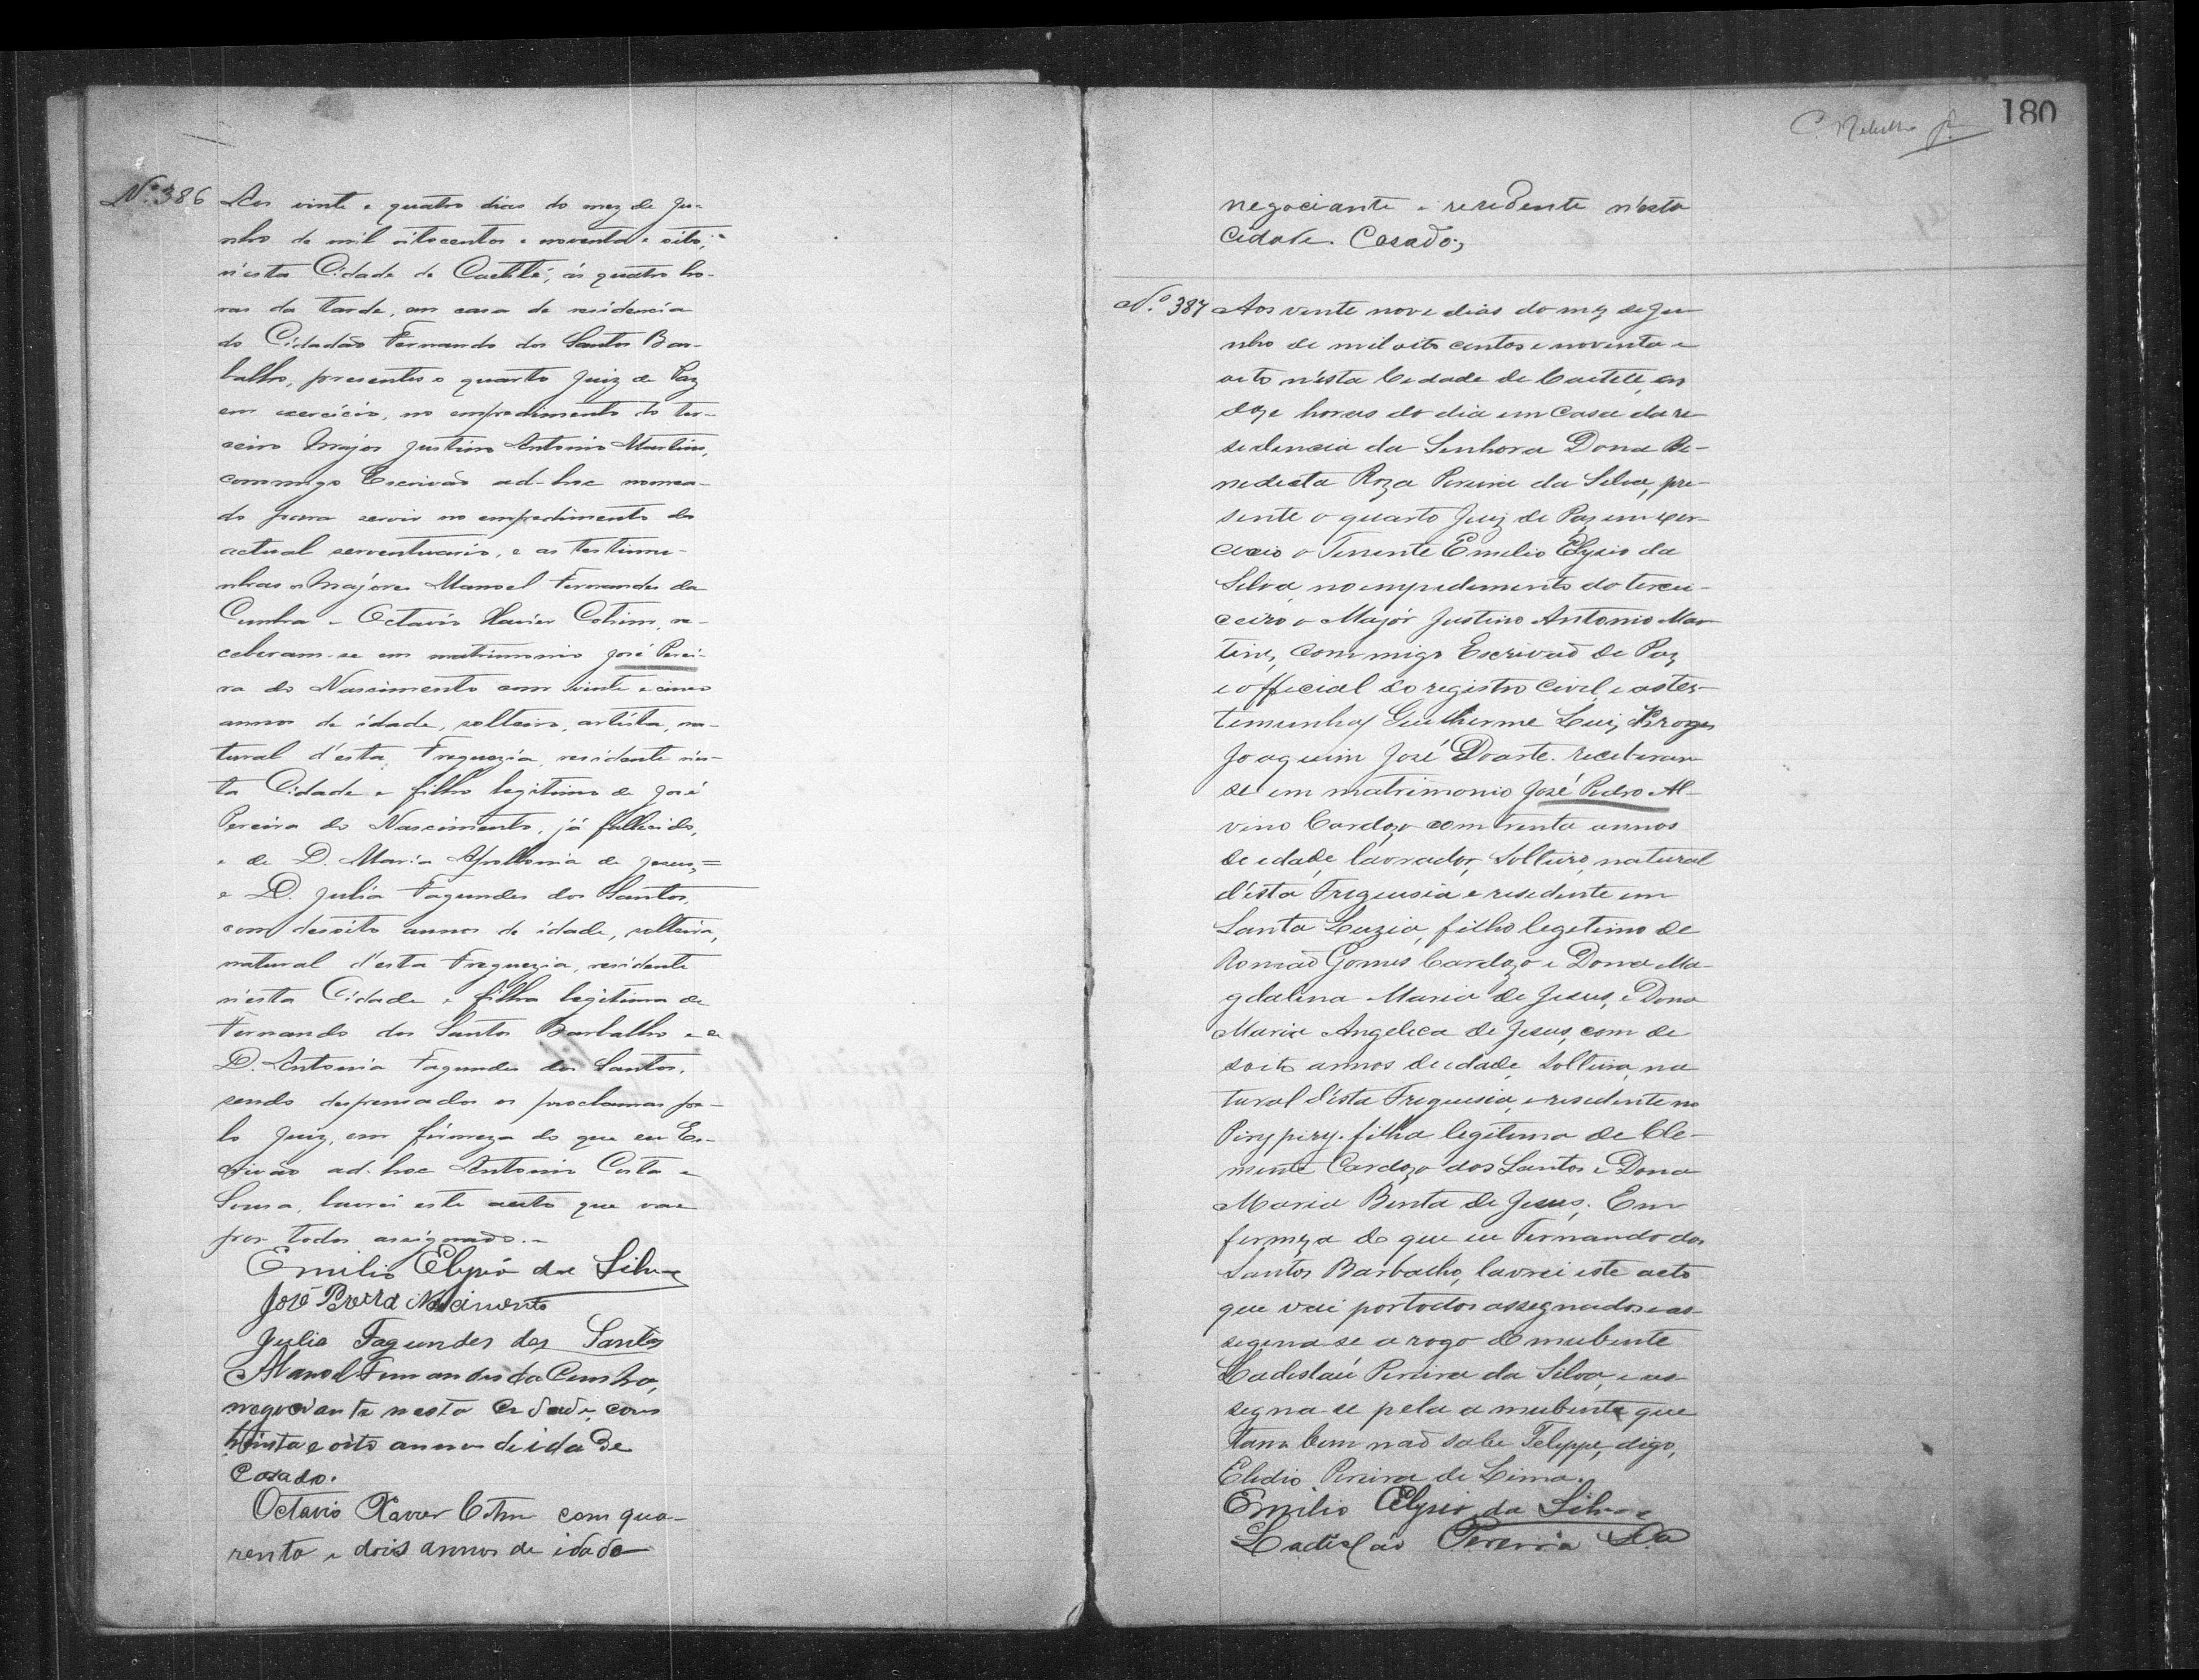 Nº 386 Aos vinte e quatro dias do mez de Ju-
nho de mil oitocentos e noventa e oito,
n'esta Cidade de Caetité, ás quatro ho-
ras da tarde, em casa de residencia
do Cidadão Fernando dos Santos Bar-
balho, presentes o quarto Juiz de Paz
em exercicio, no empedimento do ter-
ceiro Major Justino Antonio Martins,
commigo Escrivão ad-hoc nomea-
do para servir no empedimento do
actual serventuario, e as testimu-
nhas Majores Manoel Fernandes da
Cunha e Octavio Xavier Cotrim, re-
ceberam-se em matrimonio José Perei-
ra do Nascimento com vinte e cinco
annos de idade, solteiro, artista, na-
tural d'esta Freguezia, residente n'es-
ta Cidade e filho legitimo de José
Pereira do Nascimento, já fallecido,
e de D. Maria Apollonia de Jesus,=
e D. Julia Fagundes dos Santos,
com desoito annos de idade, solteira,
natural d'esta Freguezia, residente
n'esta Cidade e filha legitima de
Fernando dos Santos Barbalho e de
D. Antonia Fagundes dos Santos,
sendo despensados os proclamas pe-
lo Juiz, em firmeza do que eu Es-
crivão ad-hoc Antonio Costa e
Sousa, lavrei este acto que vae
por todos assignado.-
Emilio Elysio da Silva
José Pereira Nascimento
Julia Fagundes dos Santos
Manoel Fernandes da Cunha,
negociante nesta Cidade, com
trinta e oito annos de idade
Casado.
Octavio Xavier Cotrim com qua-
renta e dois annos de idade
180
negociante e residente n'esta
cidade. Casado,
Nº 387 Aos vente nove dias do mez de Ju
nho de mil oito centos e noventa e
oito n'esta Cedade de Caeteté, as
doze horas do dia em casa da re
sedencia da Senhora Dona Be-
nedicta Roza Pereira da Silva, pre-
sente o quarto Juiz de Paz em exer-
cicio o Tenente Emelio Elysio da
Silva, no empedemento do tercei-
ceiro o Major Justino Antonio Mar
tins, Com migo Escrivaõ de Paz
e official do registro Civel e as tes-
temunhas Guilherme Luiz Broges
Joaquim José Doarte. receberam
se em matrimonio José Pedro Al-
vino Cardozo com trenta annos
de edade, lavrador, Solteiro, natural
d'esta Freguesia e resedente em
Santa Luzia, filho legetimo de
Romaõ Gomes Cardozo e Dona Ma-
gdalena Maria de Jesus, e Dona
Maria Angelica de Jesus, com de
soito annos de edade, Solteira, na
tural d'esta Freguesia, e resedente no
Pirypiry. filha legetima de Cle-
mente Cardozo dos Santos e Dona
Maria Benta de Jesus. Em
fermeza do que eu Fernando dos
Santos Barbalho, lavrei este acto
que vai por todos assegnados e as-
segna se a rogo do nubente
Ladeslaú Pereira da Silva, e as-
segna se pela a nubente que
tam bem naõ sabe Felippe, digo,
Elidio Pereira de Lima.
Emilio Elysio da Silva
Ladisláo Pereira da